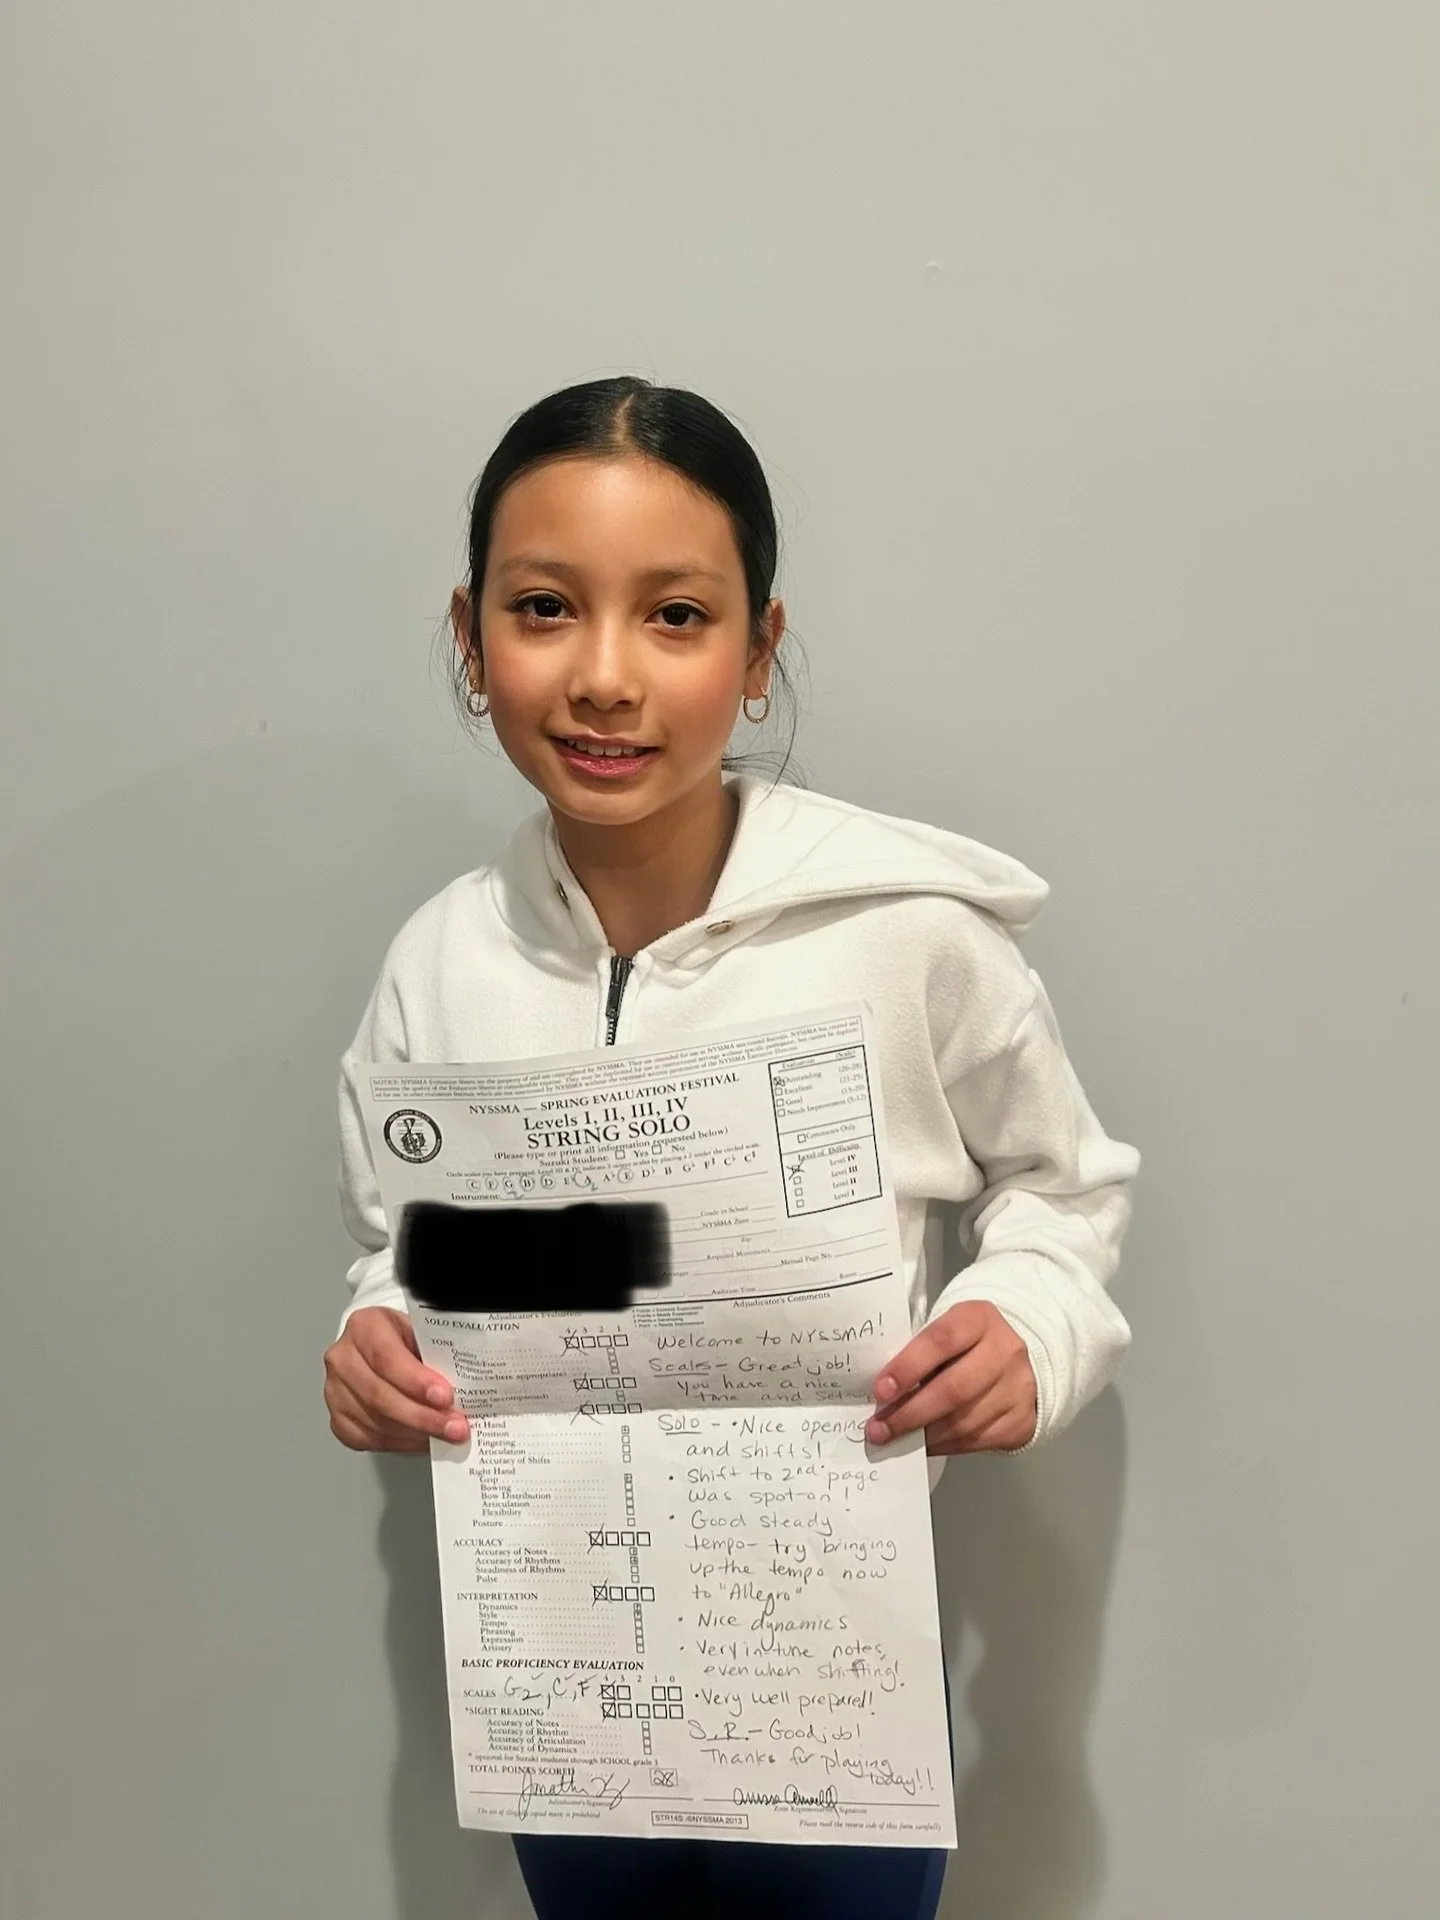 NYSSMA — SPRING EVALUATION FESTIVAL
Levels I, II, III, IV
STRING SOLO
(Please type or print all information requested below)
Suzuki Student: Yes No
Instrument:
Evaluation (Scale)
Outstanding (26-28)
Excellent (21-25)
Good (13-20)
Needs Improvement (5-12)
Comments Only
Level of Difficulty
Level IV
Level III
Level II
Level I
Grade in School
NYSSMA Zone
Zip
Required Movements
Manual Page No.
Arranger
Audition Time
Room
Adjudicator's Evaluation
Adjudicator's Comments
SOLO EVALUATION
4 3 2 1
TONE
Quality
Control/Focus
Projection
Vibrato (where appropriate)
ONATION
Tuning (accompanied)
Tonality
NIQUE
eft Hand
Position
Fingering
Articulation
Accuracy of Shifts
Right Hand
Grip
Bowing
Bow Distribution
Articulation
Flexibility
Posture
ACCURACY
Accuracy of Notes
Accuracy of Rhythms
Steadiness of Rhythms
Pulse
INTERPRETATION
Dynamics
Style
Tempo
Phrasing
Expression
Artistry
BASIC PROFICIENCY EVALUATION
4 3 2 1 0
SCALES G2, C, F
*SIGHT READING
Accuracy of Notes
Accuracy of Rhythm
Accuracy of Articulation
Accuracy of Dynamics
* optional for Suzuki students through SCHOOL grade 3
TOTAL POINTS SCORED 28
Welcome to NYSSMA!
Scales - Great job!
You have a nice
tone and set-up
Solo - • Nice opening
and shifts!
• Shift to 2nd page
was spot-on!
• Good steady
tempo - try bringing
up the tempo now
to "Allegro"
• Nice dynamics
• Very in-tune notes,
even when shifting!
• Very well prepared!
S.R. - Good job!
Thanks for playing
today!!
Adjudicator's Signature
Zone Representative's Signature
The use of illegally copied music is prohibited
STR14S ©NYSSMA 2013
Please read the reverse side of this form carefully